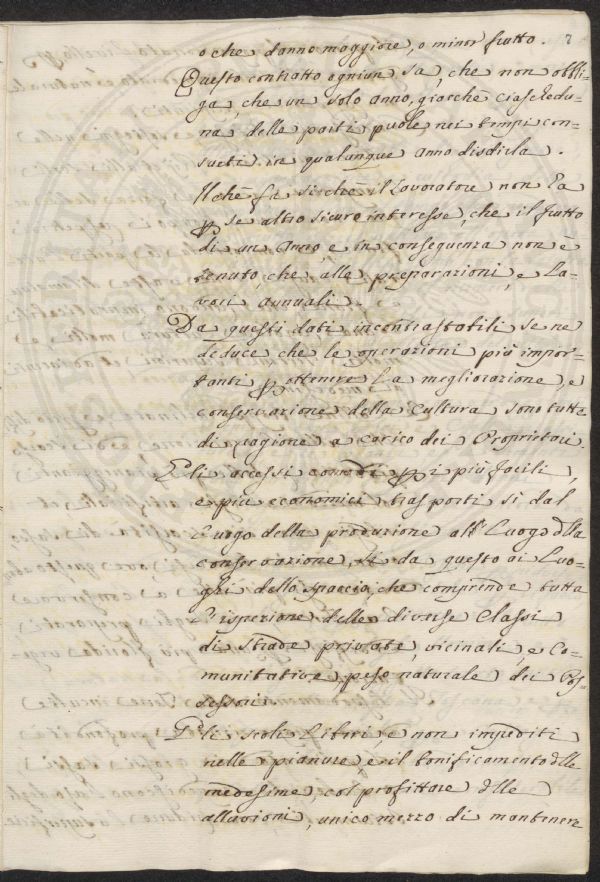 o che danno maggiore, o minor frutto. 7
Questo contratto ogniun sa, che non obbli-
ga, che un solo anno, giacchè ciascedu-
na delle parti puole nei tempi con-
sueti in qualunque anno disdirla.
Il chè fa si che il Lavoratore non ha
p se altro sicuro interesse, che il frutto
di un Anno, e in conseguenza non è
tenuto, che alle preparazioni, e La-
vori annuali.
Da questi dati incontrastabili se ne
deduce che le operazioni più impor-
tanti p ottenere la megliorazione, e
conservazione della Cultura sono tutte
di ragione a carico dei Proprietari.
Gli accessi comodi p i più facili,
e più economici trasporti sì dal
Luogo della produzione all' Luogo dlla
conservazione, sì da questo ai Luo-
ghi dello spaccio, che comprende tutta
l'ispezione delle diverse Classi
di Strade private, vicinali, e Co-
munitative, peso naturale dei Pos-
sessori.
Gli scoli liberi, e non impediti
nelle pianure, e il bonificamento dlle
medesime, col profittare dlle
alluvioni, unico mezzo di mantenere